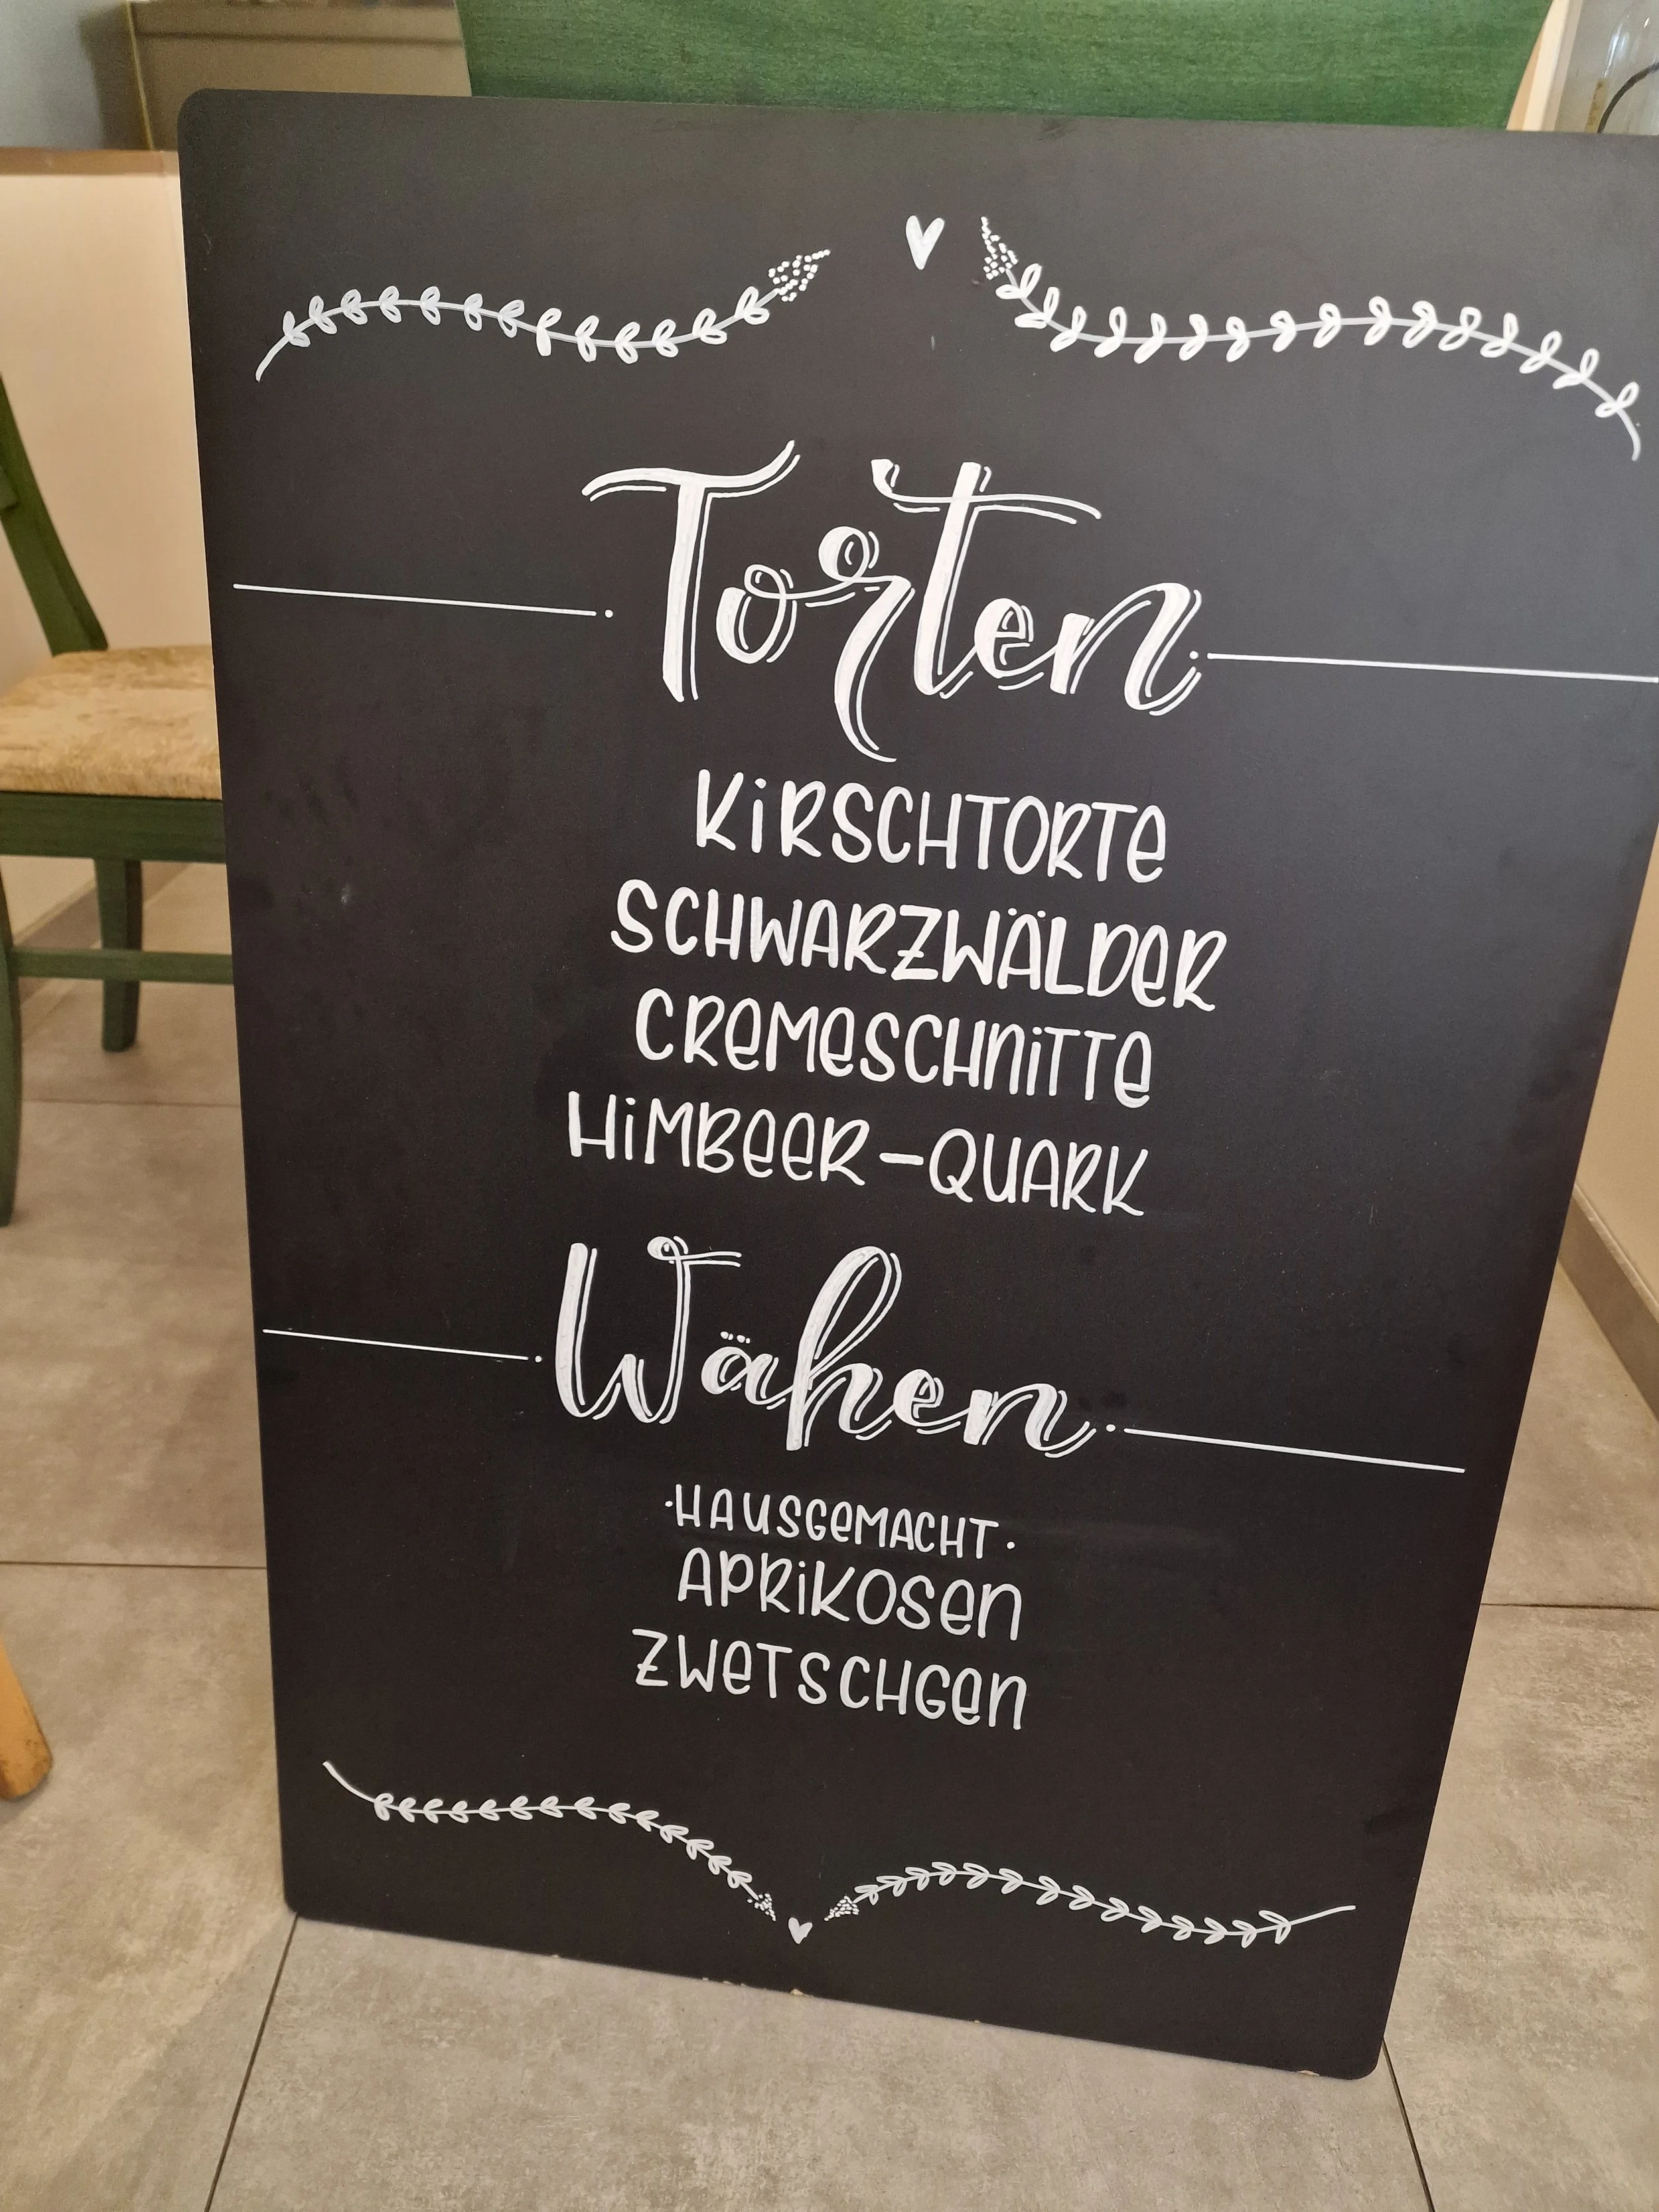 Torten
KiRSCHTORTe
SCHWARZWÄLDeR
CReMeSCHNiTTe
HiMBeeR-QUARK
Wähen
·HAUSGeMACHT·
APRiKOSen
ZWeTSCHGen